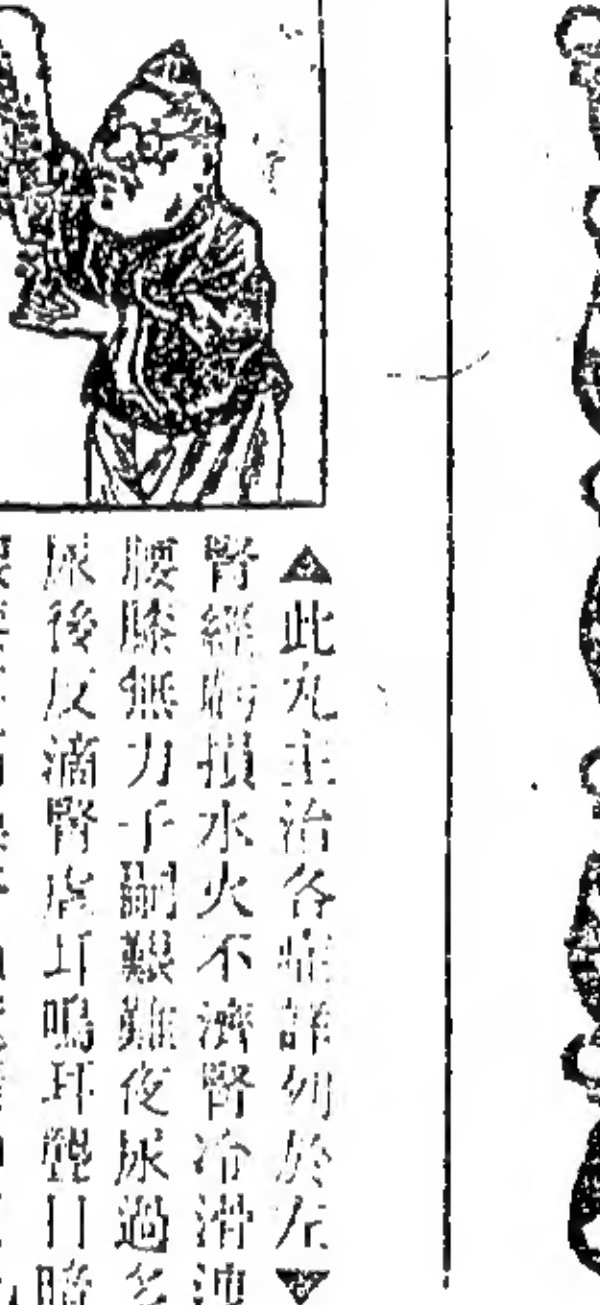 ▲此丸主治各症詳列於左▼
腎經虧損水火不濟腎冷滑
腰膝無力子嗣艱難夜尿過多
尿後反滴腎虛耳鳴耳聾